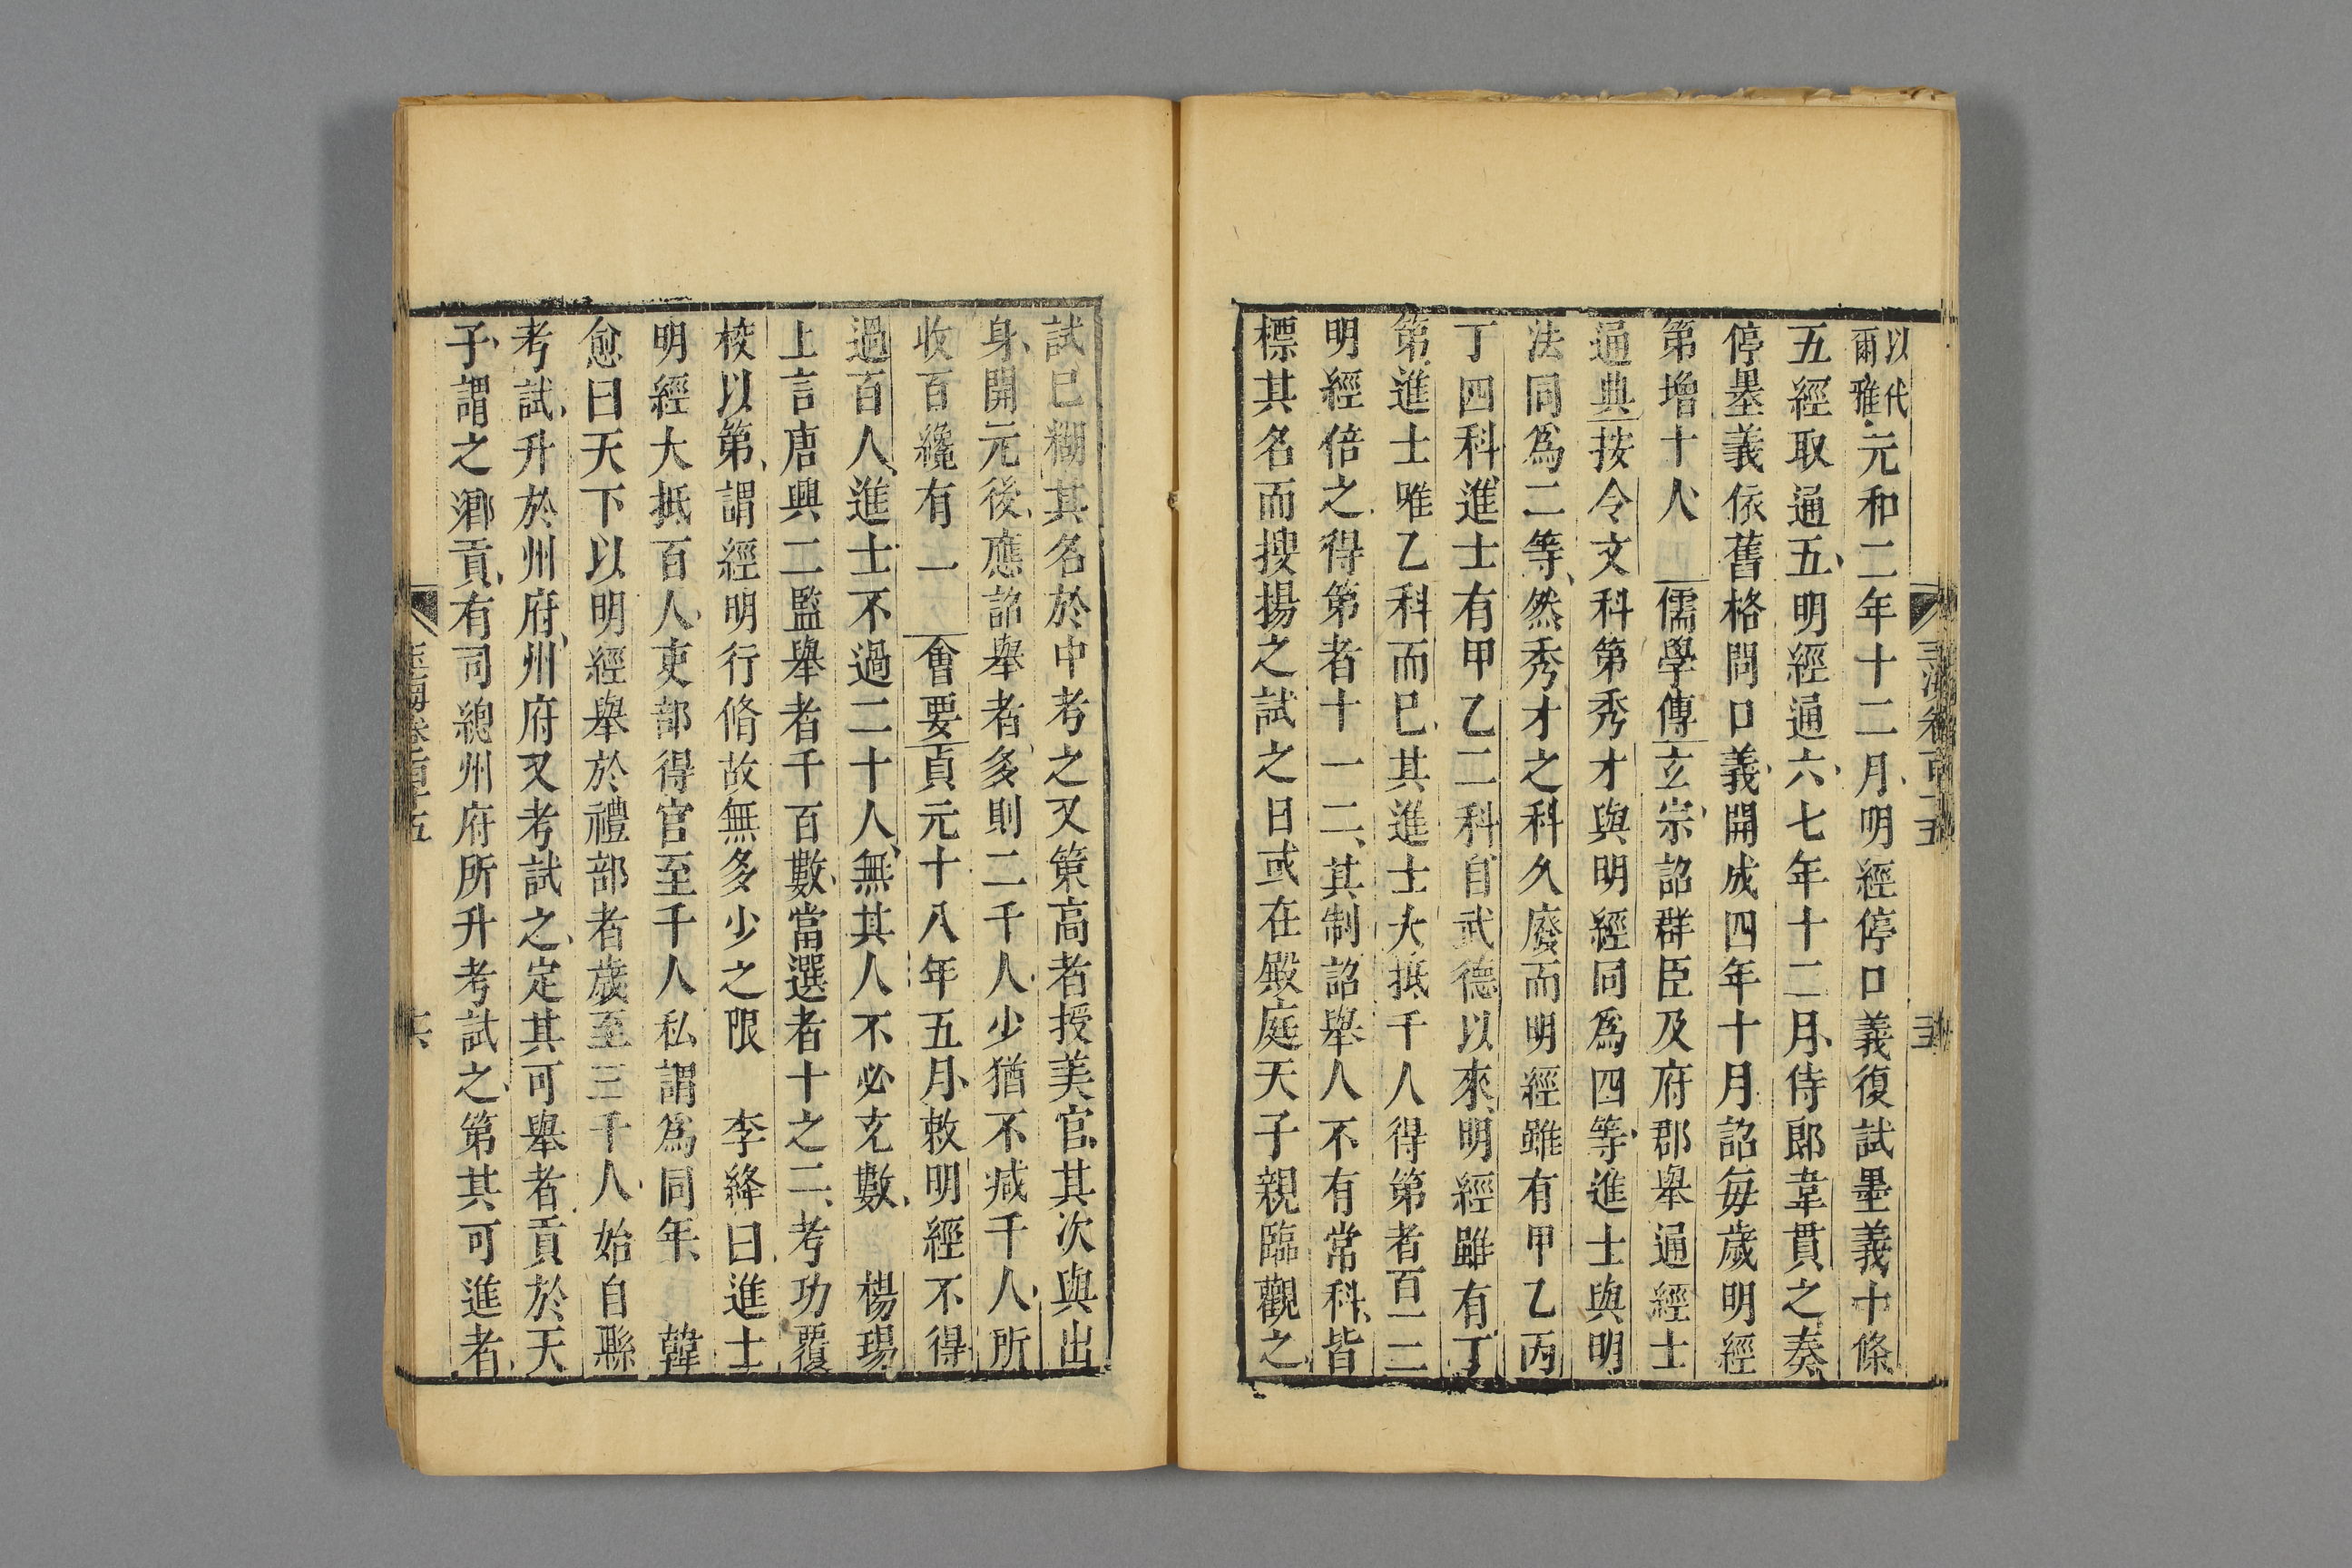 以代爾雅元和二年十二月明經停口義復試墨義十條
五經取通五明經通六七年十二月侍郎韋貫之奏
停墨義依舊格問口義開成四年十月詔毎歲明經
第增十人儒學傳玄宗詔群臣及府郡舉通經士
通典按令文科第秀才與明經同爲四等進士與明
法同爲二等然秀才之科久廢而明經雖有甲乙丙
丁四科進士有甲乙二科自武德以來明經雖有丁
第進士唯乙科而已其進士大抵千人得第者百一二
明經倍之得第者十一二其制詔舉人不有常科皆
標其名而搜揚之試之日或在殿庭天子親臨觀之
試已糊其名於中考之又策高者授美官其次與出
身開元後應詔舉者多則二千人少猶不减千人所
收百纔有一會要貞元十八年五月敕明經不得
過百人進士不過二十人無其人不必充數 楊瑒
上言唐興二監舉者千百數當選者十之二考功覆
校以第謂經明行脩故無多少之限 李絳曰進士
明經大抵百人吏部得官至千人私謂爲同年 韓
愈曰天下以明經舉於禮部者歲至三千人始自縣
考試升於州府州府又考試之定其可舉者貢於天
子謂之鄉貢有司總州府所升考試之第其可進者